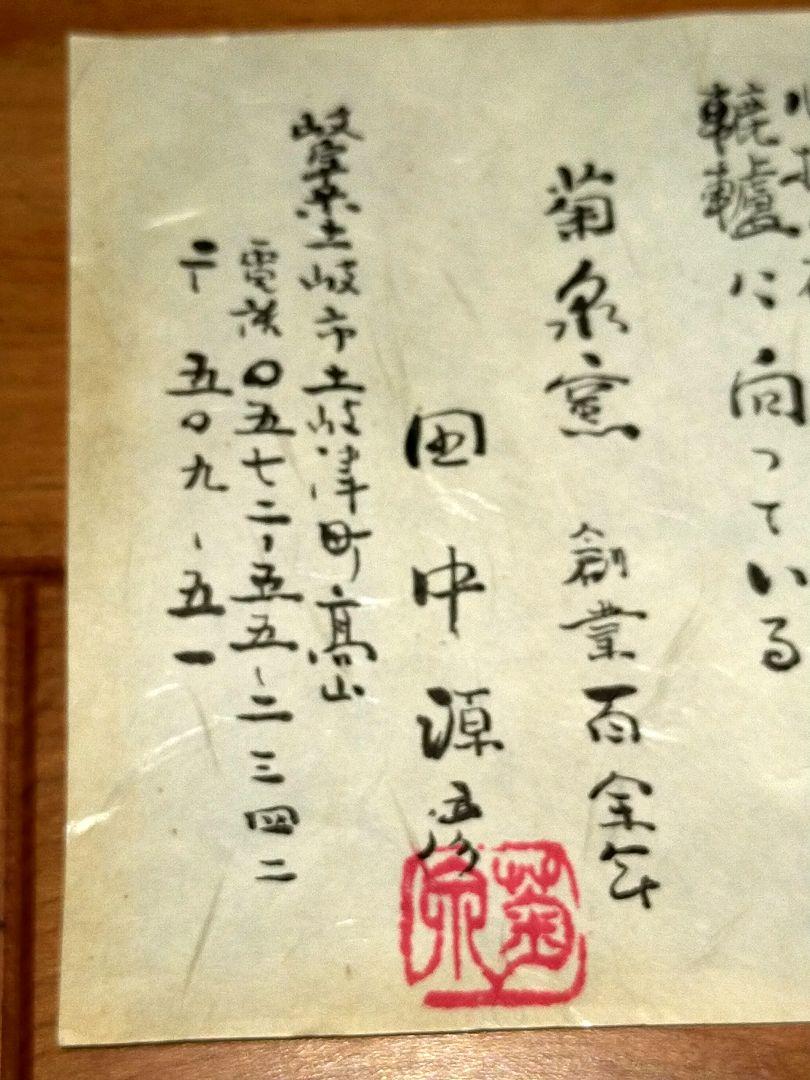 轆轤に向っている
菊泉窯 創業百余年
田中源彦
岐阜県土岐市土岐津町高山
電話〇五七二-五五-二三四二
〒五〇九-五一
菊泉